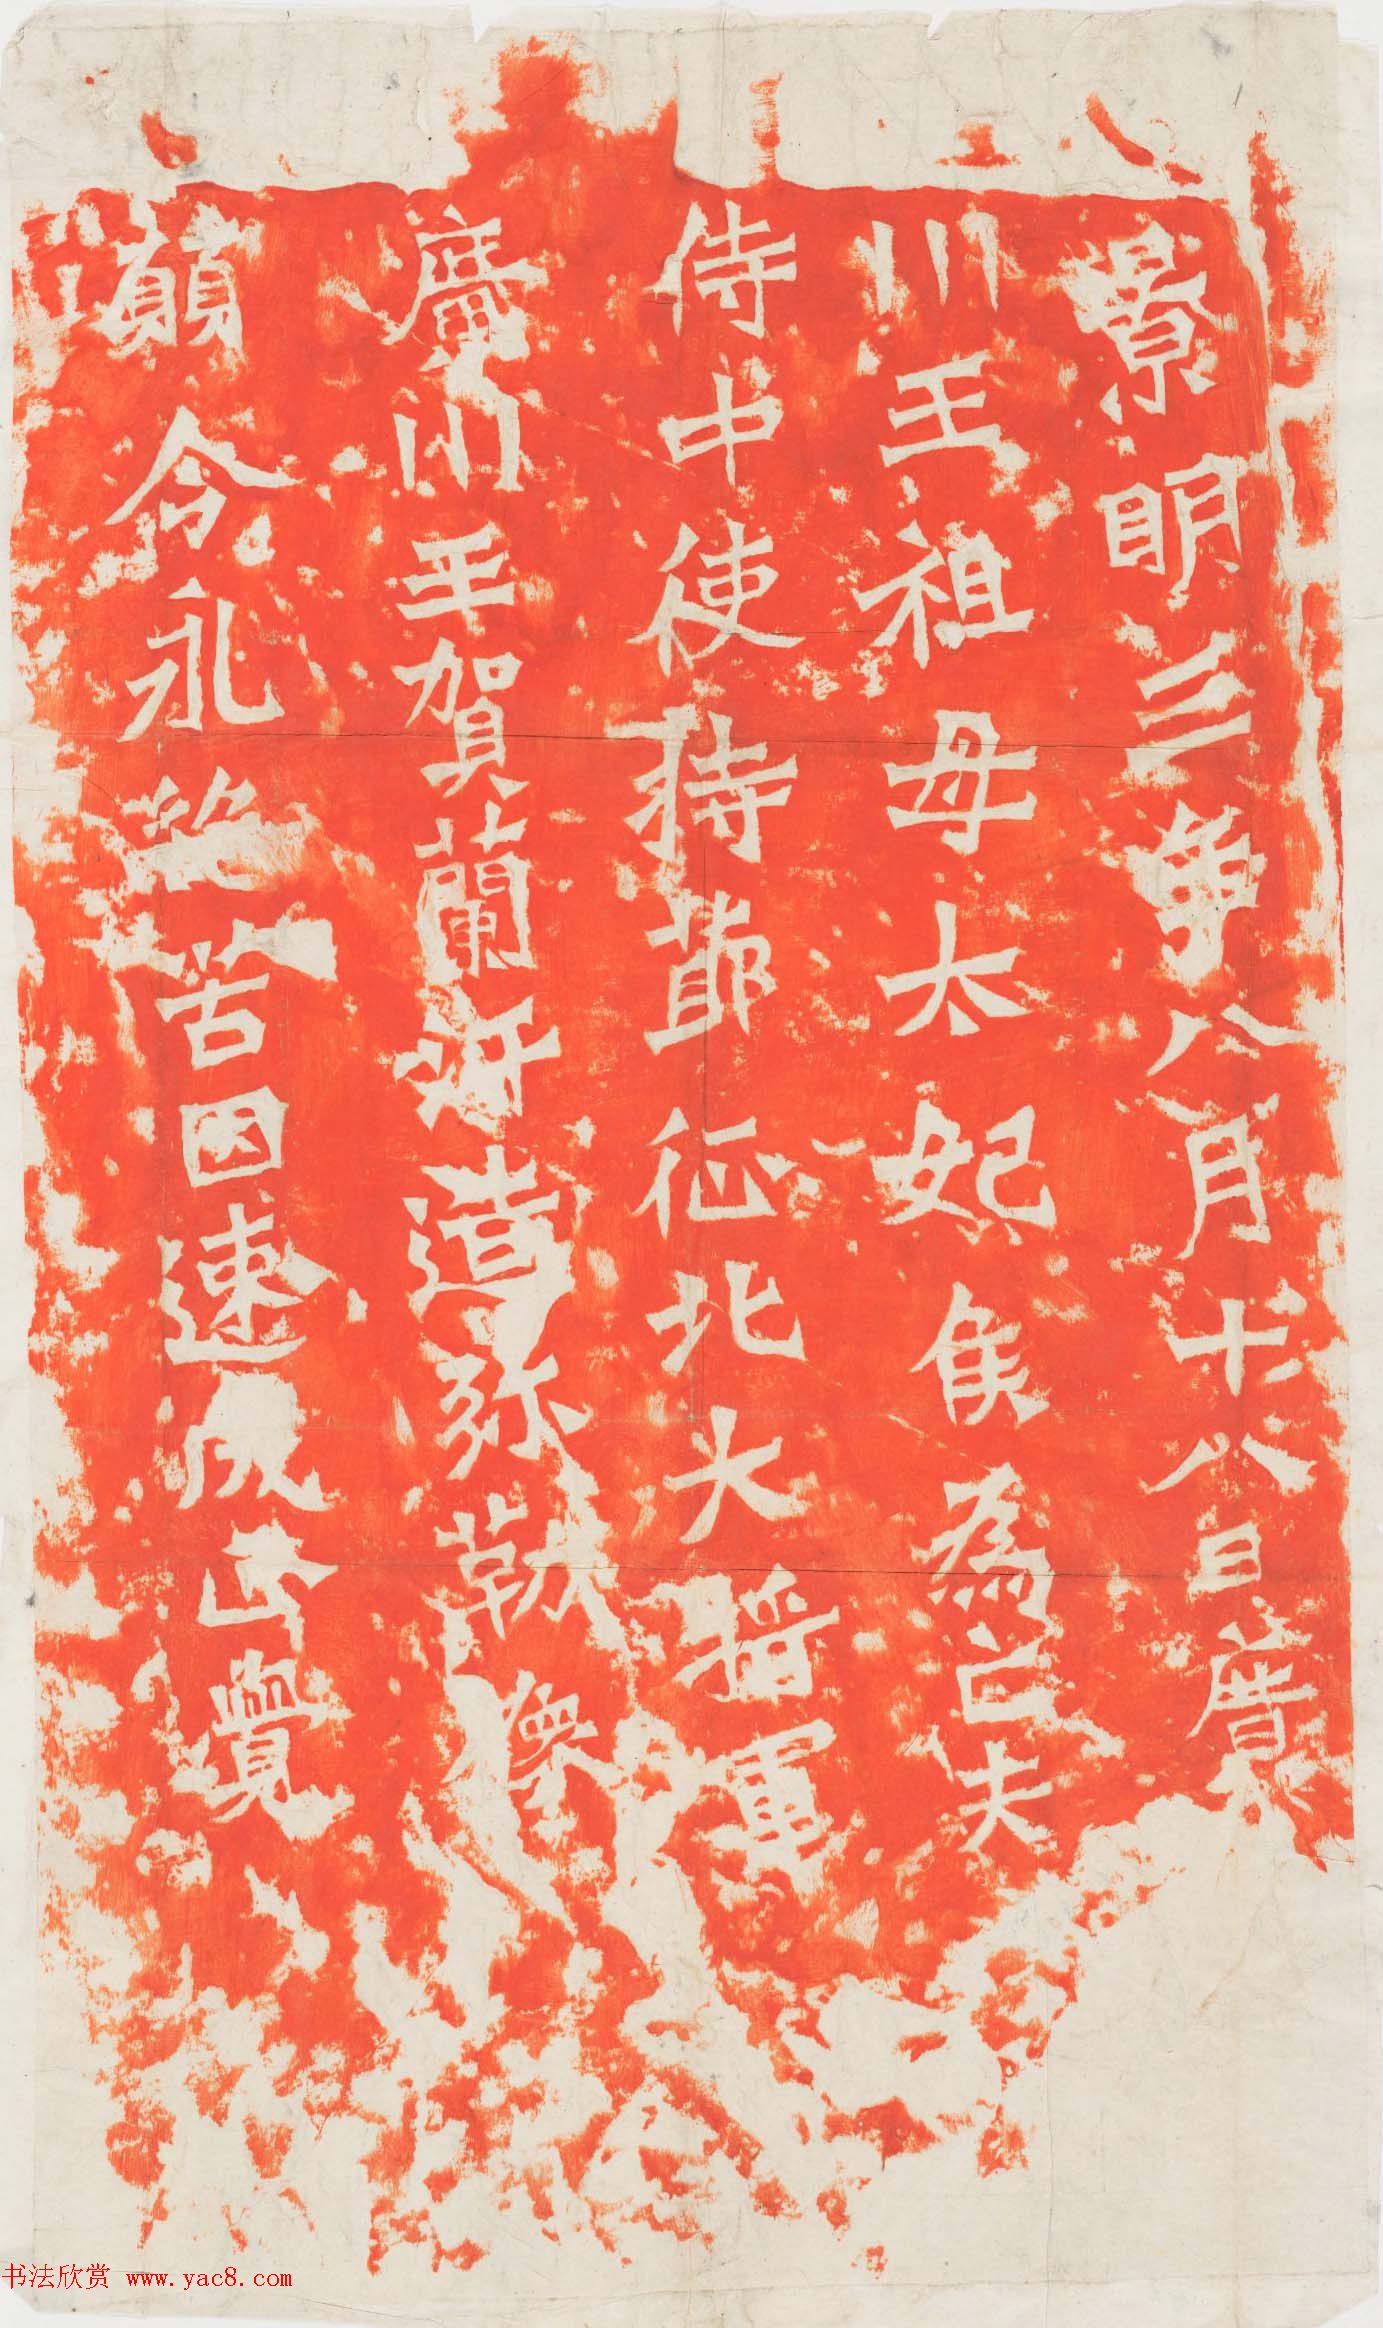 景明三年八月十八日廣
川王祖母太妃侯為亡夫
侍中使持節征北大將軍
廣川王賀蘭汗造弥勒像
願令永絕苦因速成正覺
书法欣赏 www.yac8.com